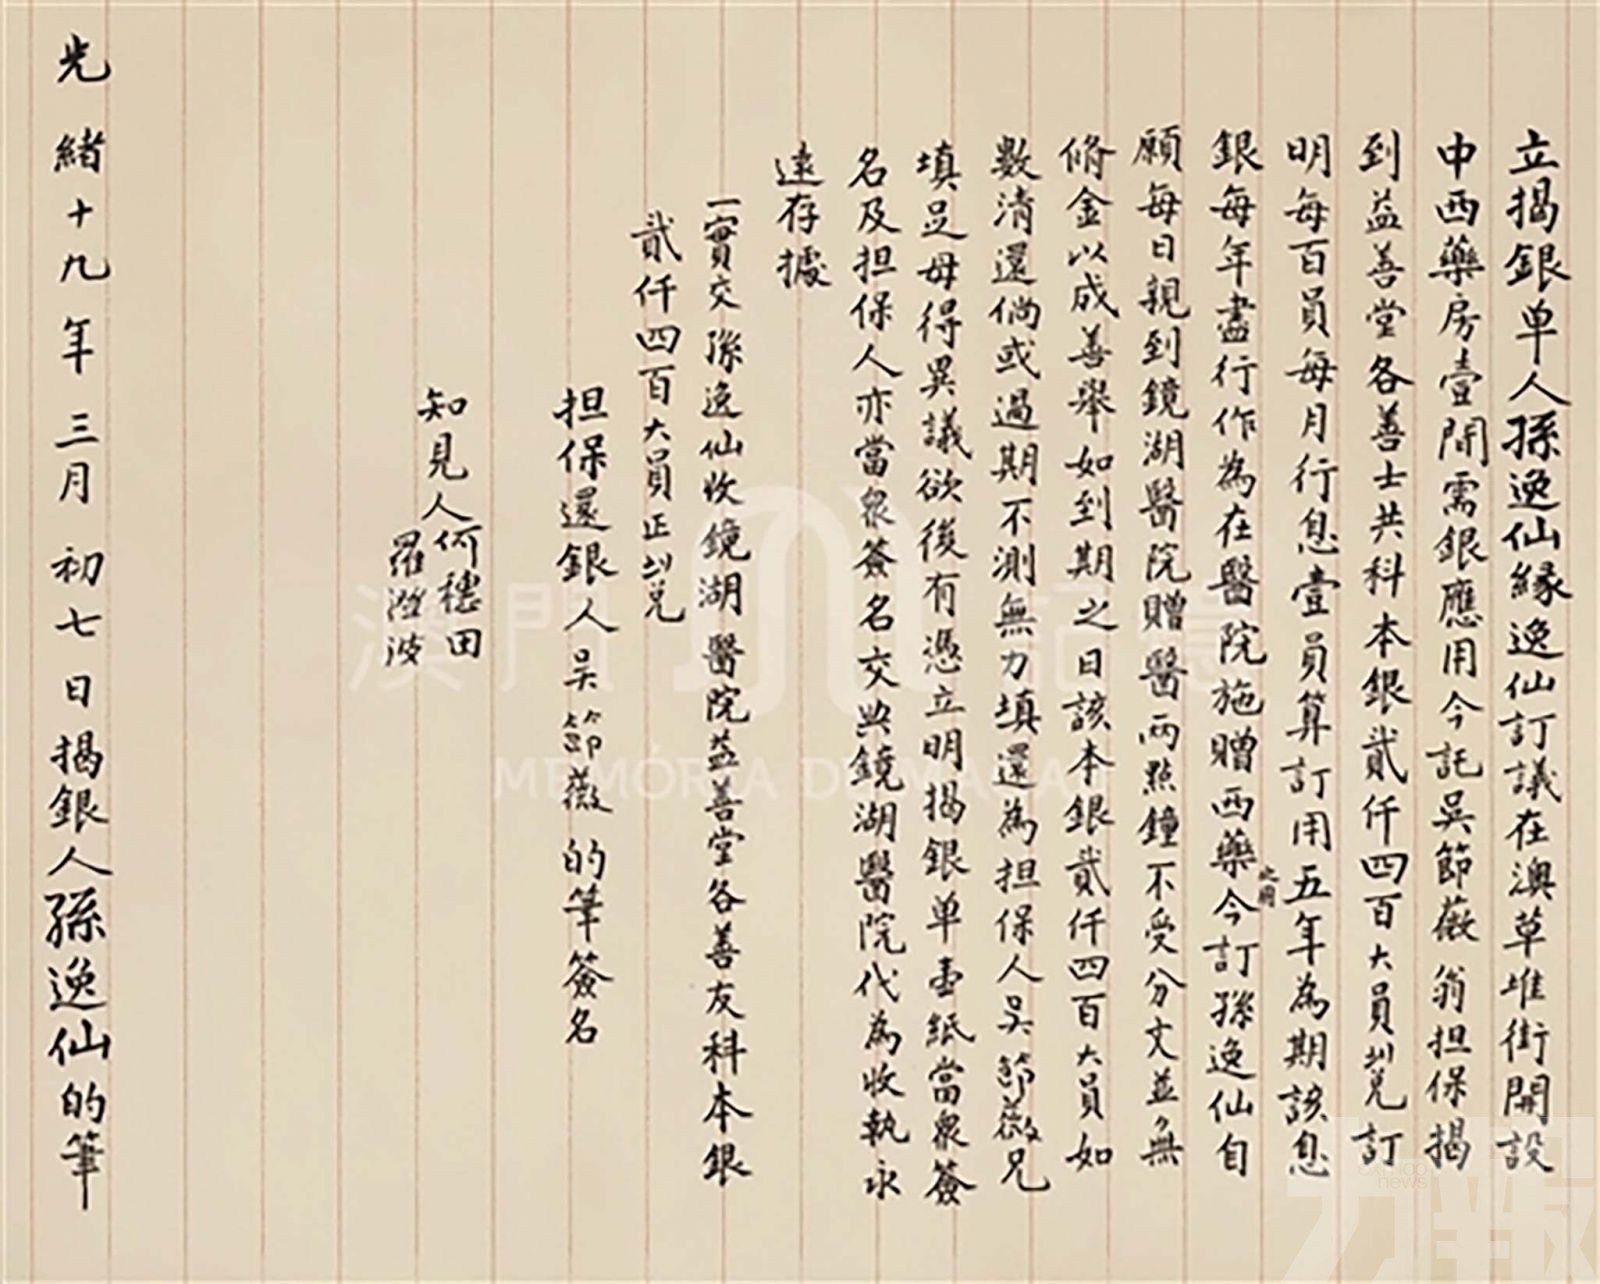 立揭銀单人孫逸仙緣逸仙訂議在澳草堆街開設
中西藥房壹間需銀應用今託吳節薇翁担保揭
到益善堂各善士共科本銀貳仟四百大員㘰兑訂
明每百員每月行息壹員算訂用五年為期該息
銀每年盡行作為在醫院施贈西藥之用今訂孫逸仙自
願每日親到鏡湖醫院贈醫兩點鐘不受分文並無
脩金以成善舉如到期之日該本銀貳仟四百大員如
數清還倘或過期不測無力填還為担保人吳節薇兄
填足毋得異議欲後有憑立明揭銀单壹紙當衆簽
名及担保人亦當衆簽名交與鏡湖醫院代為收執永
遠存據
一實交孫逸仙收鏡湖醫院益善堂各善友科本銀
貳仟四百大員正㘰兑
担保還銀人吳節薇的筆簽名
知見人何穗田
羅澄波
光緒十九年三月初七日揭銀人孫逸仙的筆
澳門記憶
MEMÓRIA DE MACAU
力報
news